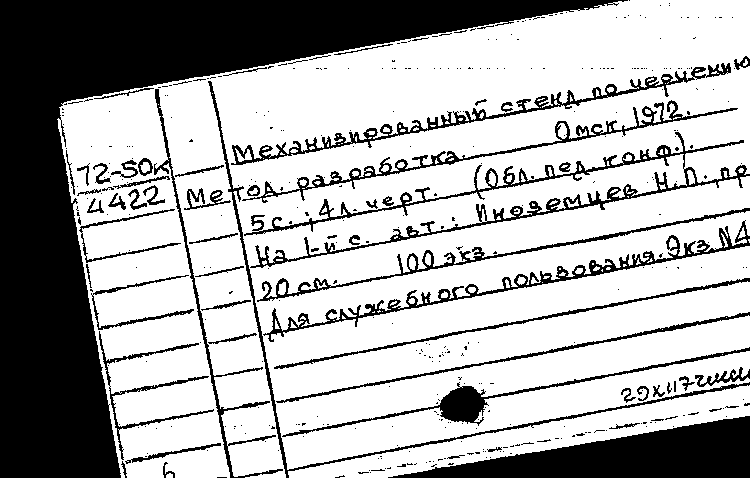 Механизированный стенд по черчению
72-50к
Метод. разработка. Омск, 1972.
4422
5 с.; 4 л. черт. (Обл. пед. конф.).
На 1-й с. авт.: Иноземцев Н.П., пр
20 см. 100 экз.
Для служебного пользования. Экз. N4
6